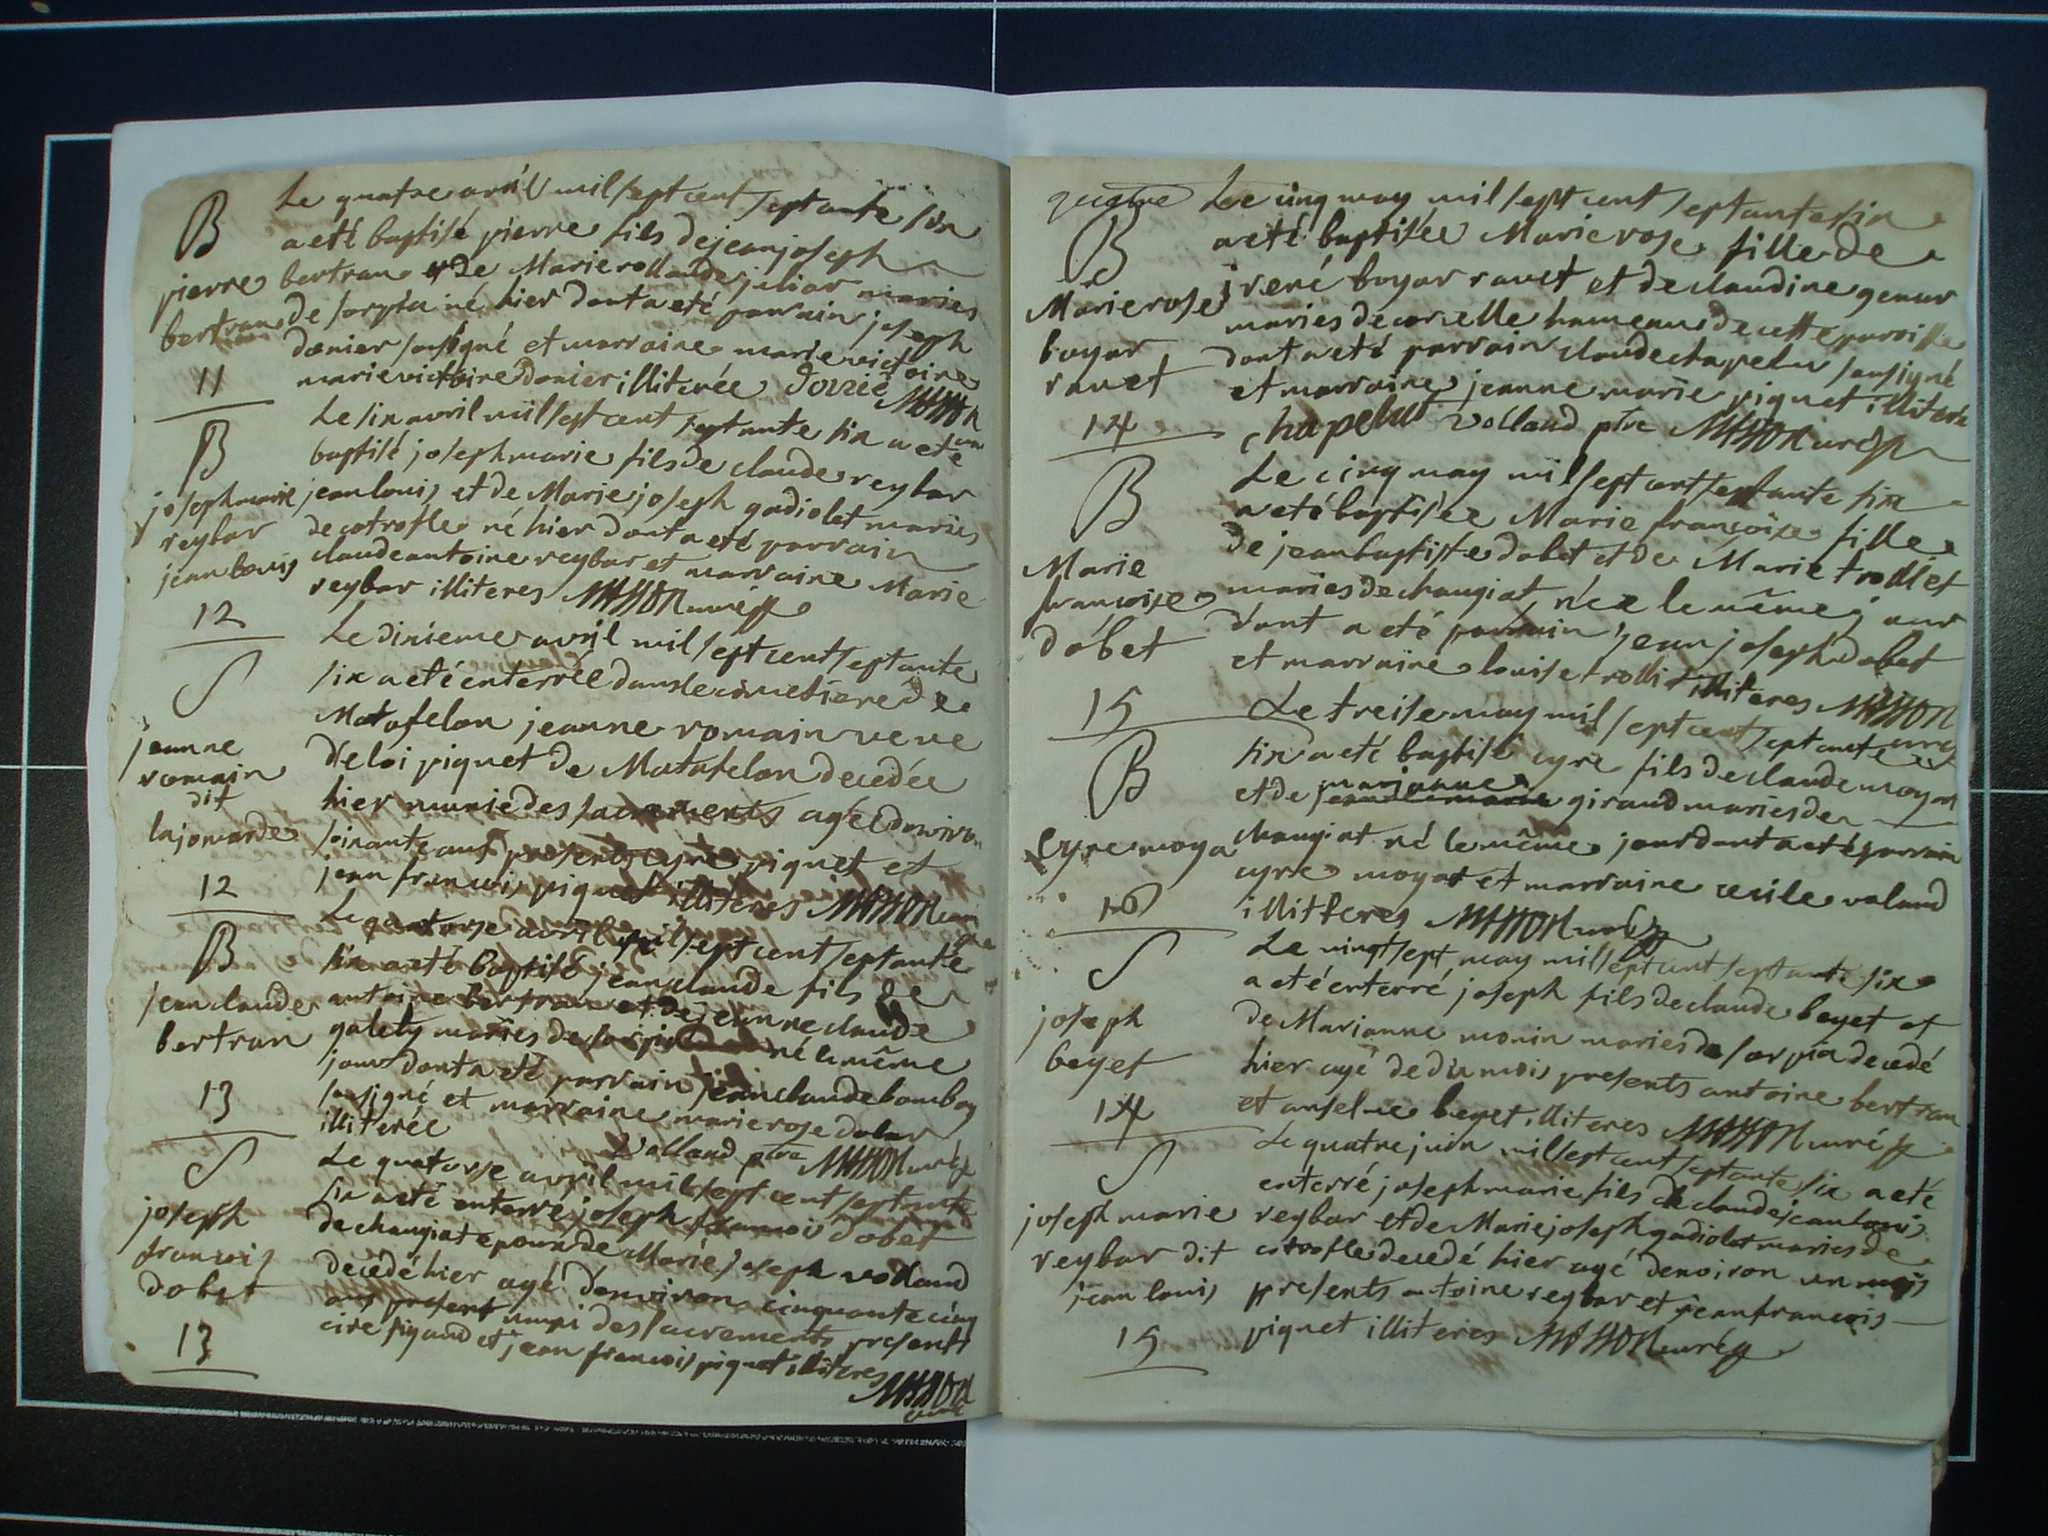 B
pierre
bertran
11
Le quatre avril mil sept cent septante six
a eté baptisé pierre fils de jean joseph
bertran et de Marie rollande juliar maries
de sorpia né hier dont a eté parrain joseph
donier sousigné et marraine marie victoire
marie victoire donier illiterée MASSON
B
joseph marie
reybar
jean louis
12
Le six avril mil sept cent septante six a eté
baptisé joseph marie fils de claude reybar
jean louis et de Marie joseph gadiolet maries
de cotrofle né hier dont a eté parrain
claude antoine reybar et marraine Marie
reybar illiteres MASSON curé
S
jeanne
romain
dit
lajomarde
12
Le dixieme avril mil sept cent septante
six a eté enterrée dans le cimetiere de
Matafelon jeanne romain veve
d'eloi piquet de Matafelon decedée
hier munie des sacrements agée d'environ
soixante ans presents cyre piquet et
jean francois piquet illiteres MASSON curé
B
jean claude
bertran
13
Le quatorse avril mil sept cent septante
six a eté baptisé jean claude fils de
antoine bertran et de jeanne claude
galety maries de sorpia né le même
jour dont a eté parrain jean claude bomboy
sousigné et marraine marie rose dobar
illiterée
Volland ptre MASSON curé
S
joseph
francois
dobet
13
Le quatorse avril mil sept cent septante
six a eté enterré joseph francois dobet
de changiat epoux de Marie joseph volland
decedé hier agé d'environ cinquante cinq
ans present muni des sacrements presents
cire figaud et jean francois piquet illiteres
MASSON
curé
B
Marie rose
boyar
ravet
14
Le cinq may mil sept cent septante six
a eté baptisée Marie rose fille de
rené boyar ravet et de claudine genur
maries de corcelle hameau de cette paroisse
dont a eté parrain claude chapelu sousigné
et marraine jeanne marie piquet illiterée
Chapelut Volland ptre MASSON curé
B
Marie
francoise
dobet
15
Le cinq may mil sept cent septante six
a eté baptisée Marie francoise fille
de jean baptiste dobet et de Marie trollet
maries de changiat née le même jour
dont a eté parrain jean joseph dobet
et marraine louise trollit illiteres MASSON
curé
B
Cyre moya
16
Le treise may mil sept cent septante
six a eté baptisé cyre fils de claude moyat
et de marianne giraud maries de
changiat né le même jour dont a eté parrain
cyre moyat et marraine cecile voland
illitteres MASSON curé
S
joseph
beget
14
Le vingt sept may mil sept cent septante six
a eté enterré joseph fils de claude beget et
de Marianne monin maries de sorpia decedé
hier agé de dix mois presents antoine bertran
et anselme beget illiteres MASSON curé
S
joseph marie
reybar dit
jean louis
15
Le quatre juin mil sept cent septante six a eté
enterré joseph marie fils de claude jean louis
reybar et de Marie joseph gadiolet maries de
cotrofle decedé hier agé d'environ un mois
presents antoine reybar et jean francois
piquet illiteres MASSON curé